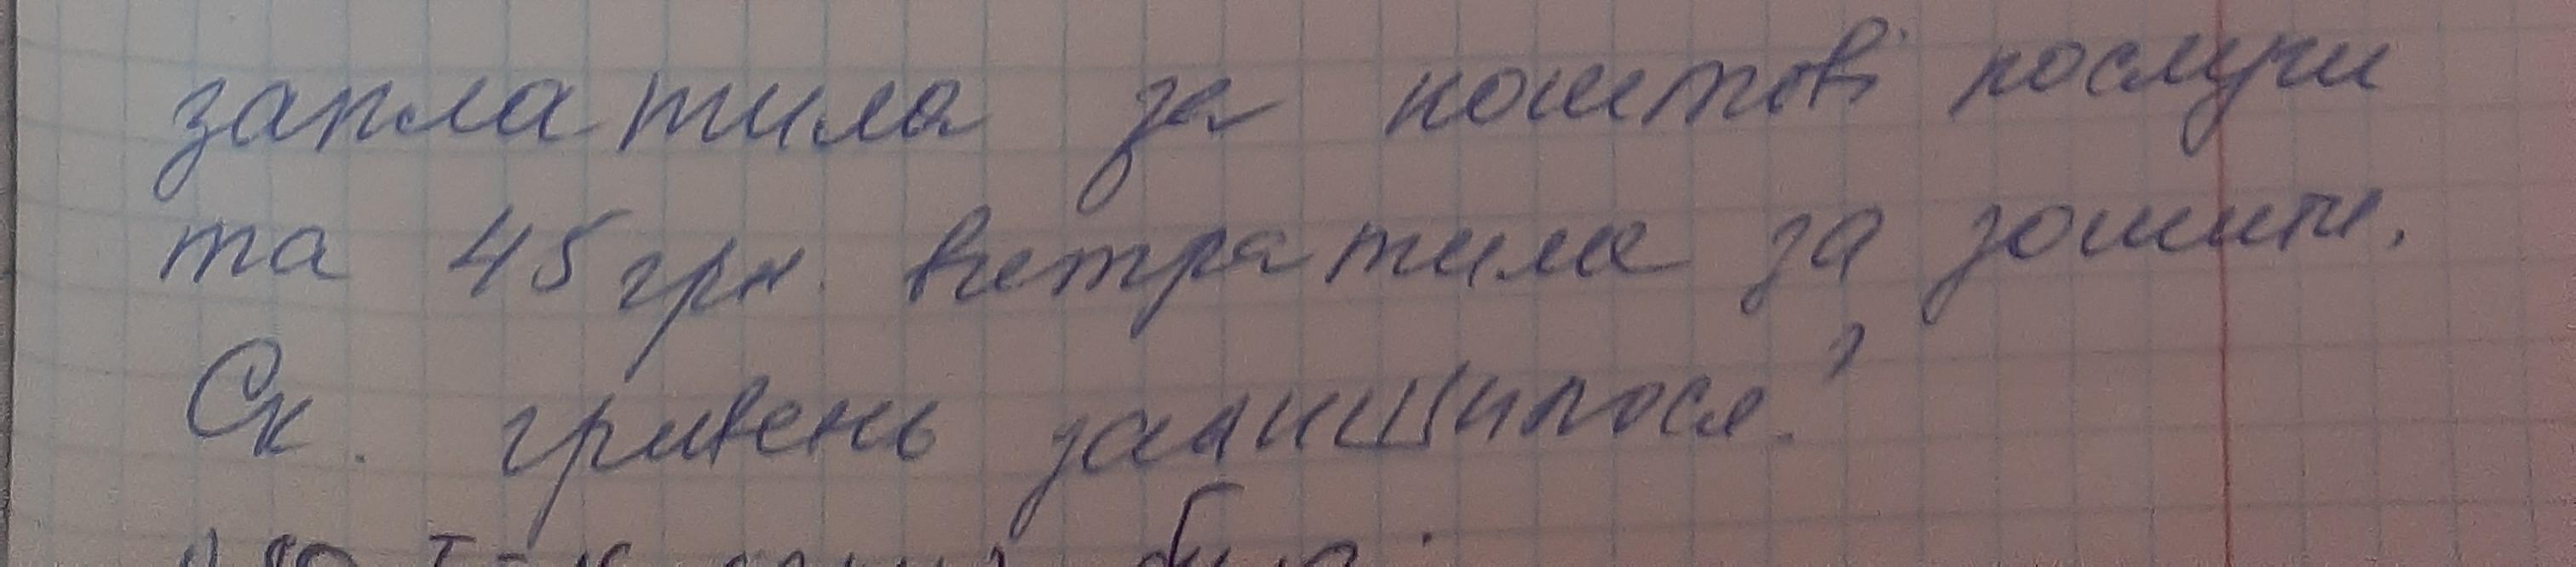 заплатила за коштові послуги
та 45 грн. витратила за зошити.
Ск. гривень залишилося?